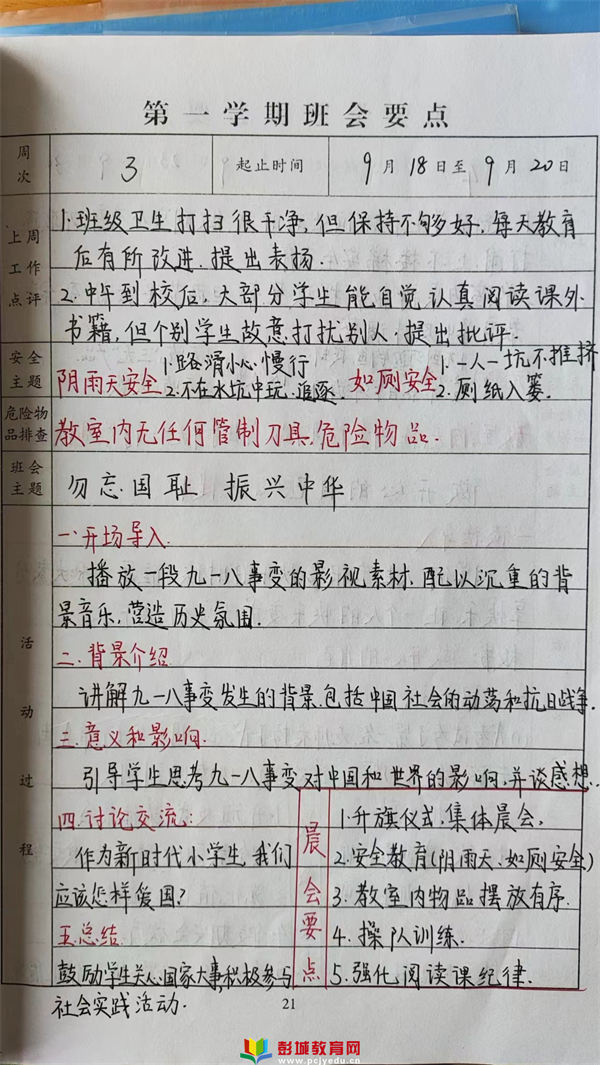 第一学期班会要点
周次 3 起止时间 9月18日至9月20日
上周工作点评
1.班级卫生打扫很干净,但保持不够好,每天教育
后有所改进.提出表扬.
2.中午到校后,大部分学生能自觉认真阅读课外
书籍,但个别学生故意打扰别人.提出批评.
安全主题
阴雨天安全 1.路滑小心慢行 如厕安全 1.一人一坑不推挤
2.不在水坑中玩.追逐. 2.厕纸入篓.
危险物品排查 教室内无任何管制刀具,危险物品.
班会主题 勿忘国耻 振兴中华
活动过程
一.开场导入
播放一段九一八事变的影视素材.配以沉重的背
景音乐,营造历史氛围.
二.背景介绍
讲解九一八事变发生的背景.包括中国社会的动荡和抗日战争.
三.意义和影响.
引导学生思考九一八事变对中国和世界的影响.并谈感想.
四.讨论交流:
作为新时代小学生,我们
应该怎样爱国?
五.总结.
鼓励学生关心国家大事,积极参与
社会实践活动.
晨会要点
1.升旗仪式.集体晨会,
2.安全教育(阴雨天、如厕安全)
3.教室内物品摆放有序.
4.操队训练.
5.强化阅读课纪律.
21
彭城教育网
www.pcjyedu.cn